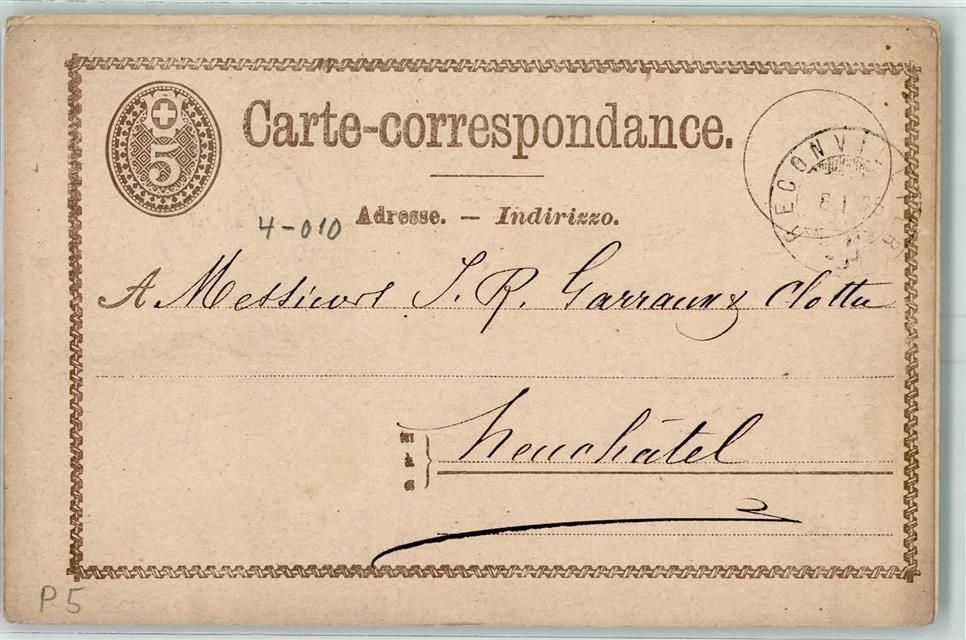 5
Carte-correspondance.
RECONVILLIER
Adresse. — Indirizzo.
4-010
A Messieurs J. R. Garraux & Clottu
in
à
a
Neuchâtel
P5